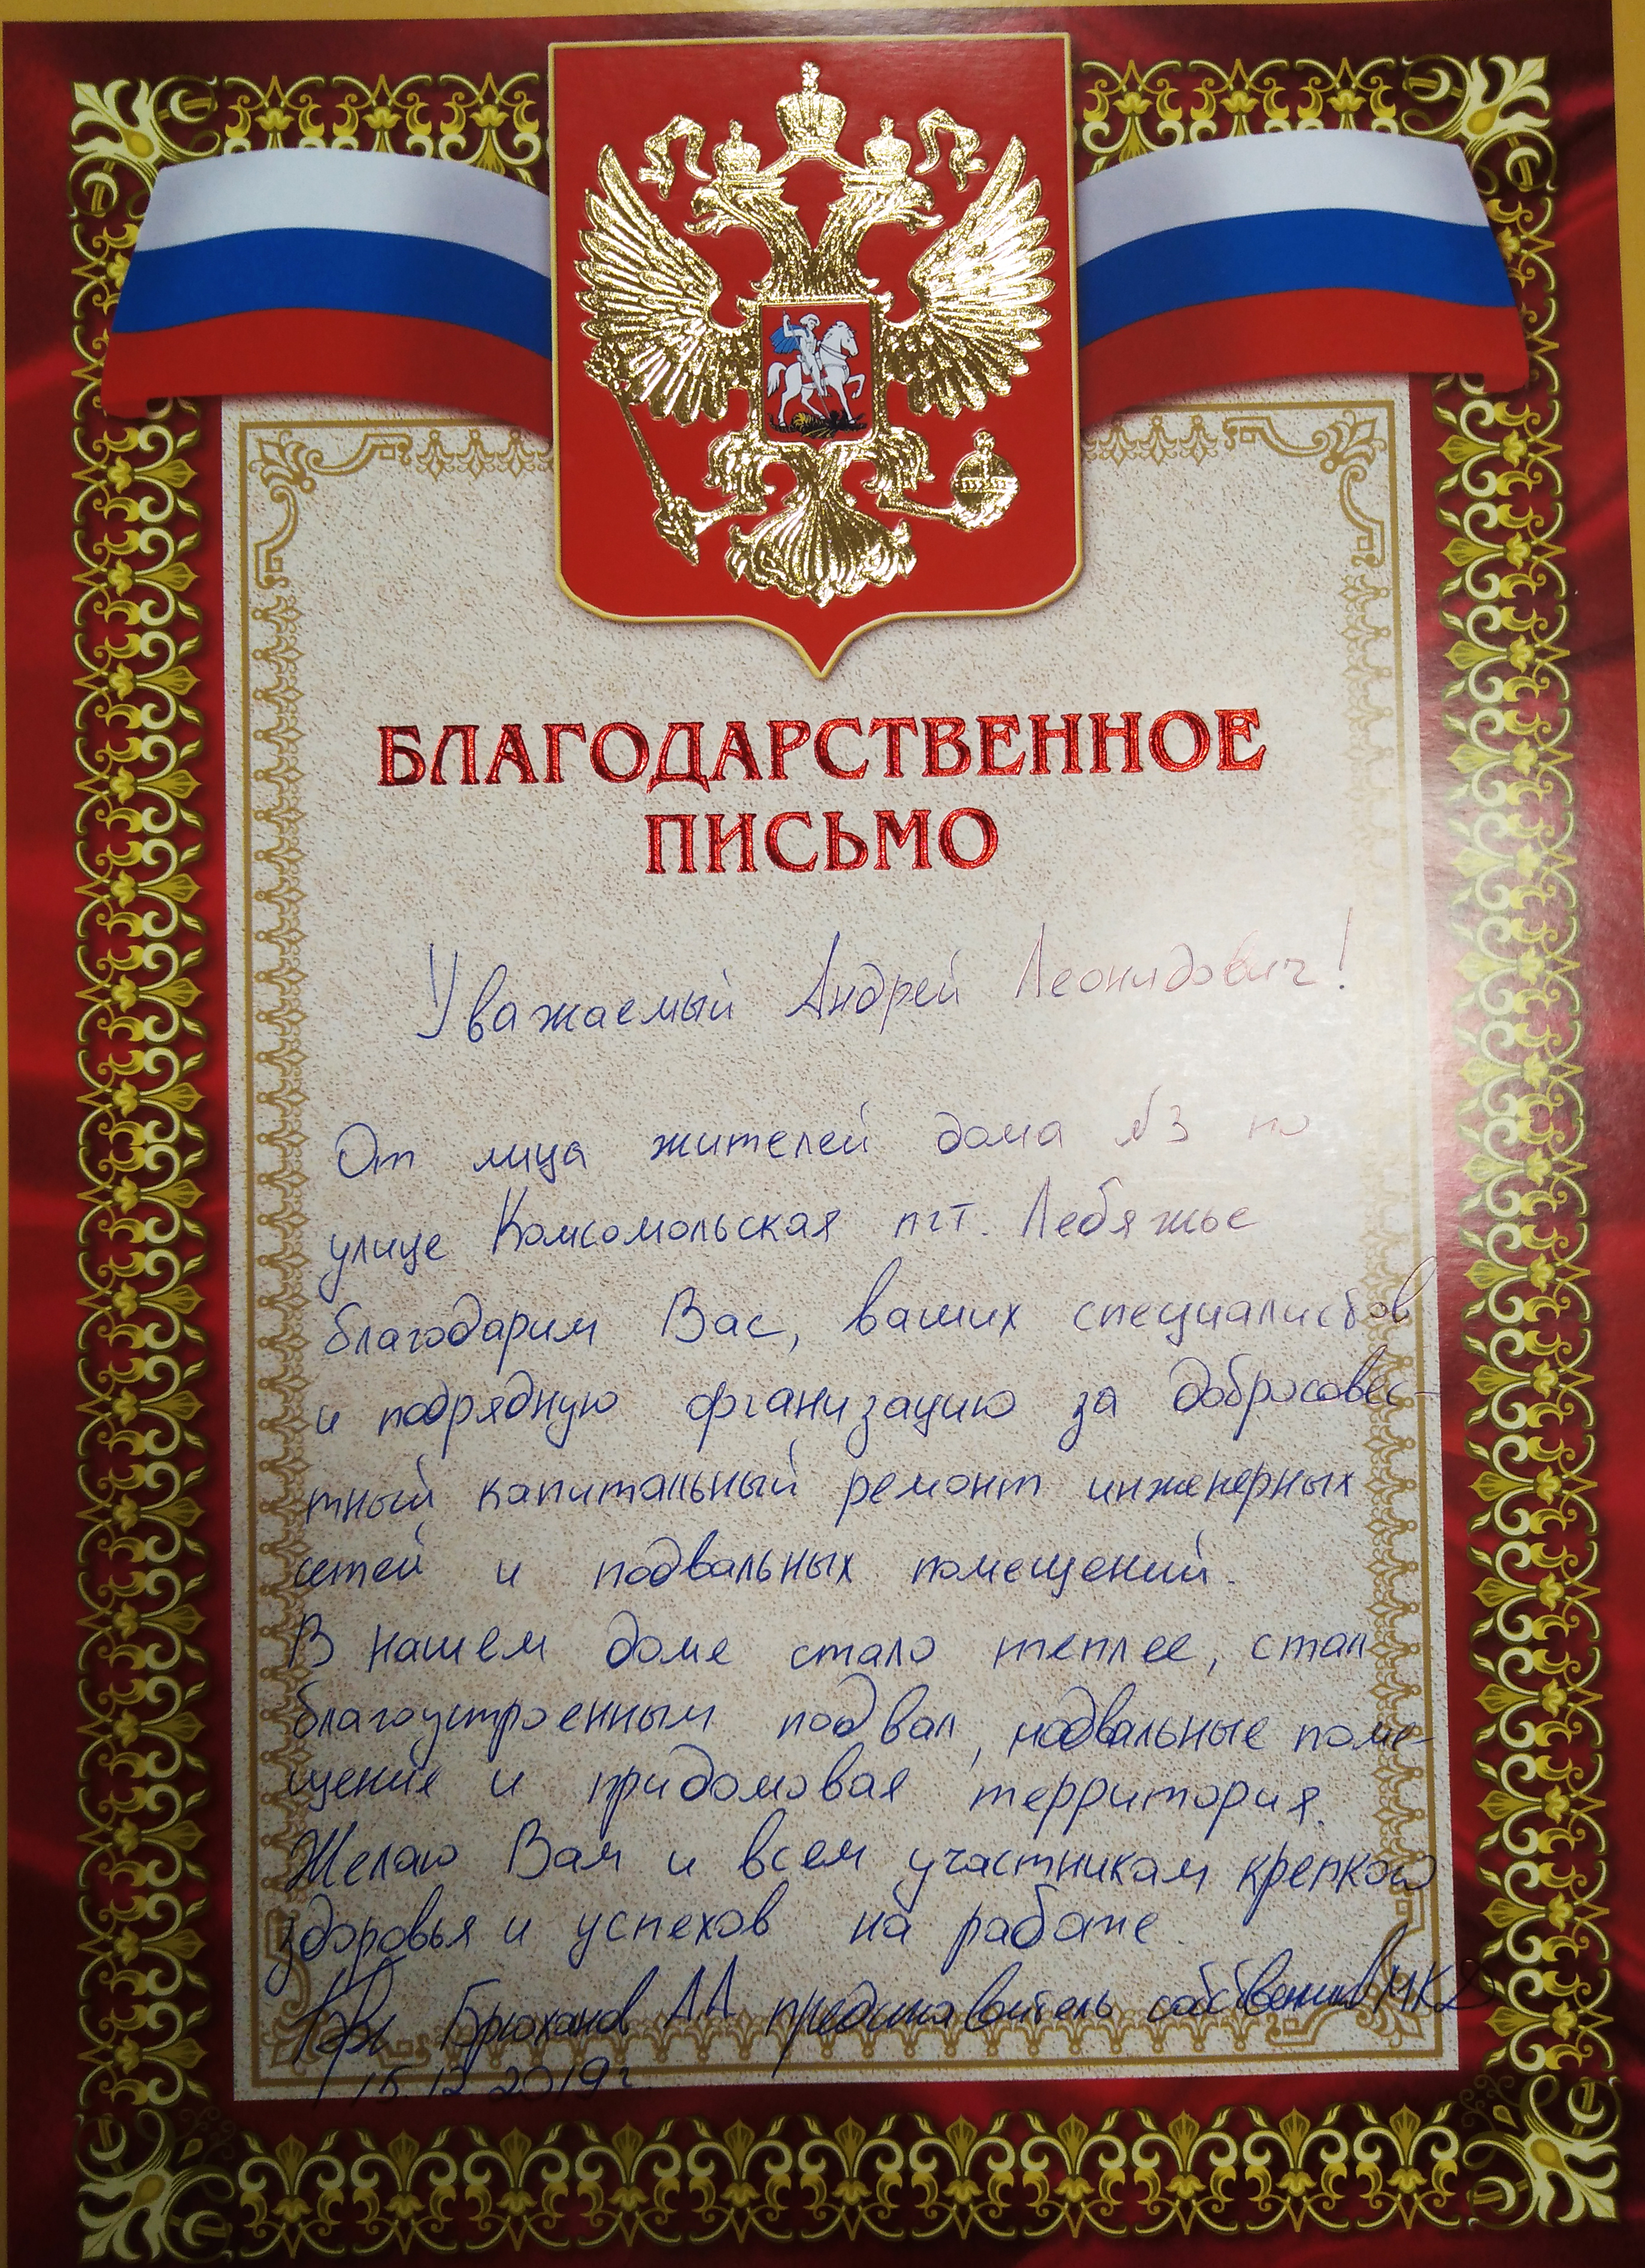 БЛАГОДАРСТВЕННОЕ
ПИСЬМО
Уважаемый Андрей Леонидович!
От лица жителей дома №3 по
улице Комсомольская пгт. Лебяжье
благодарим Вас, ваших специалистов
и подрядную организацию за добросовес-
тный капитальный ремонт инженерных
сетей и подвальных помещений.
В нашем доме стало теплее, стал
благоустроенным подвал, подвальные поме-
щение и придомовая территория.
Желаю Вам и всем участникам крепкого
здоровья и успехов на работе.
Брюханов АА представитель собственников МКД
15.12.2019г.